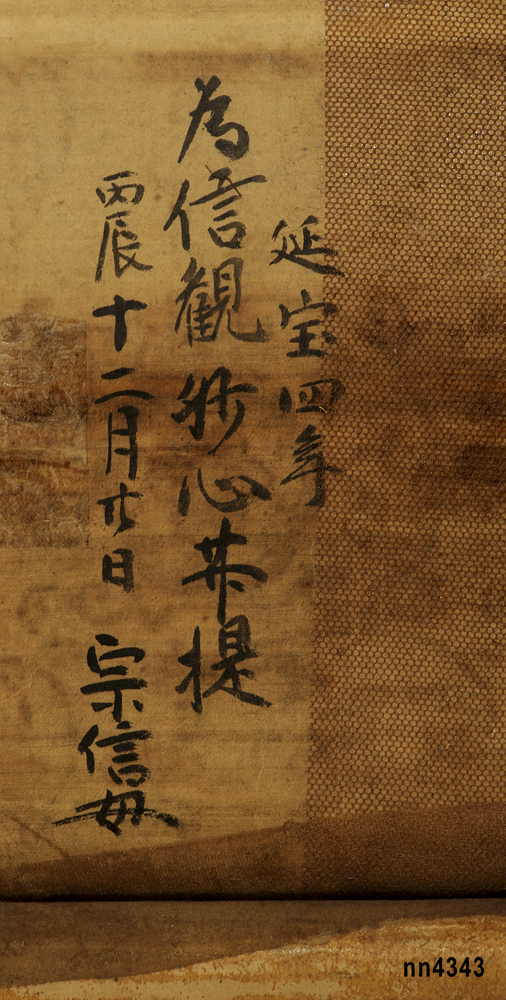 延宝四年
為信観妙心菩提
丙辰十二月廿日 宗信母
nn4343